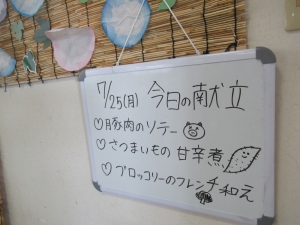 7/25(月) 今日の献立
♡豚肉のソテー
♡さつまいもの 甘辛煮
♡ブロッコリーのフレンチ和え